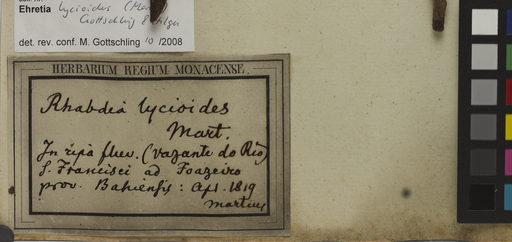 Ehretia lycioides (Mart.)
Gottschling & Hilger
det. rev. conf. M. Gottschling 10 /2008
HERBARIUM REGIUM MONACENSE.
Rhabdia lycioides
Mart.
In ripa fluv. (vazante do Rio)
S. Francisci ad Joazeiro
prov. Bahiensis: Apr. 1819
Martius